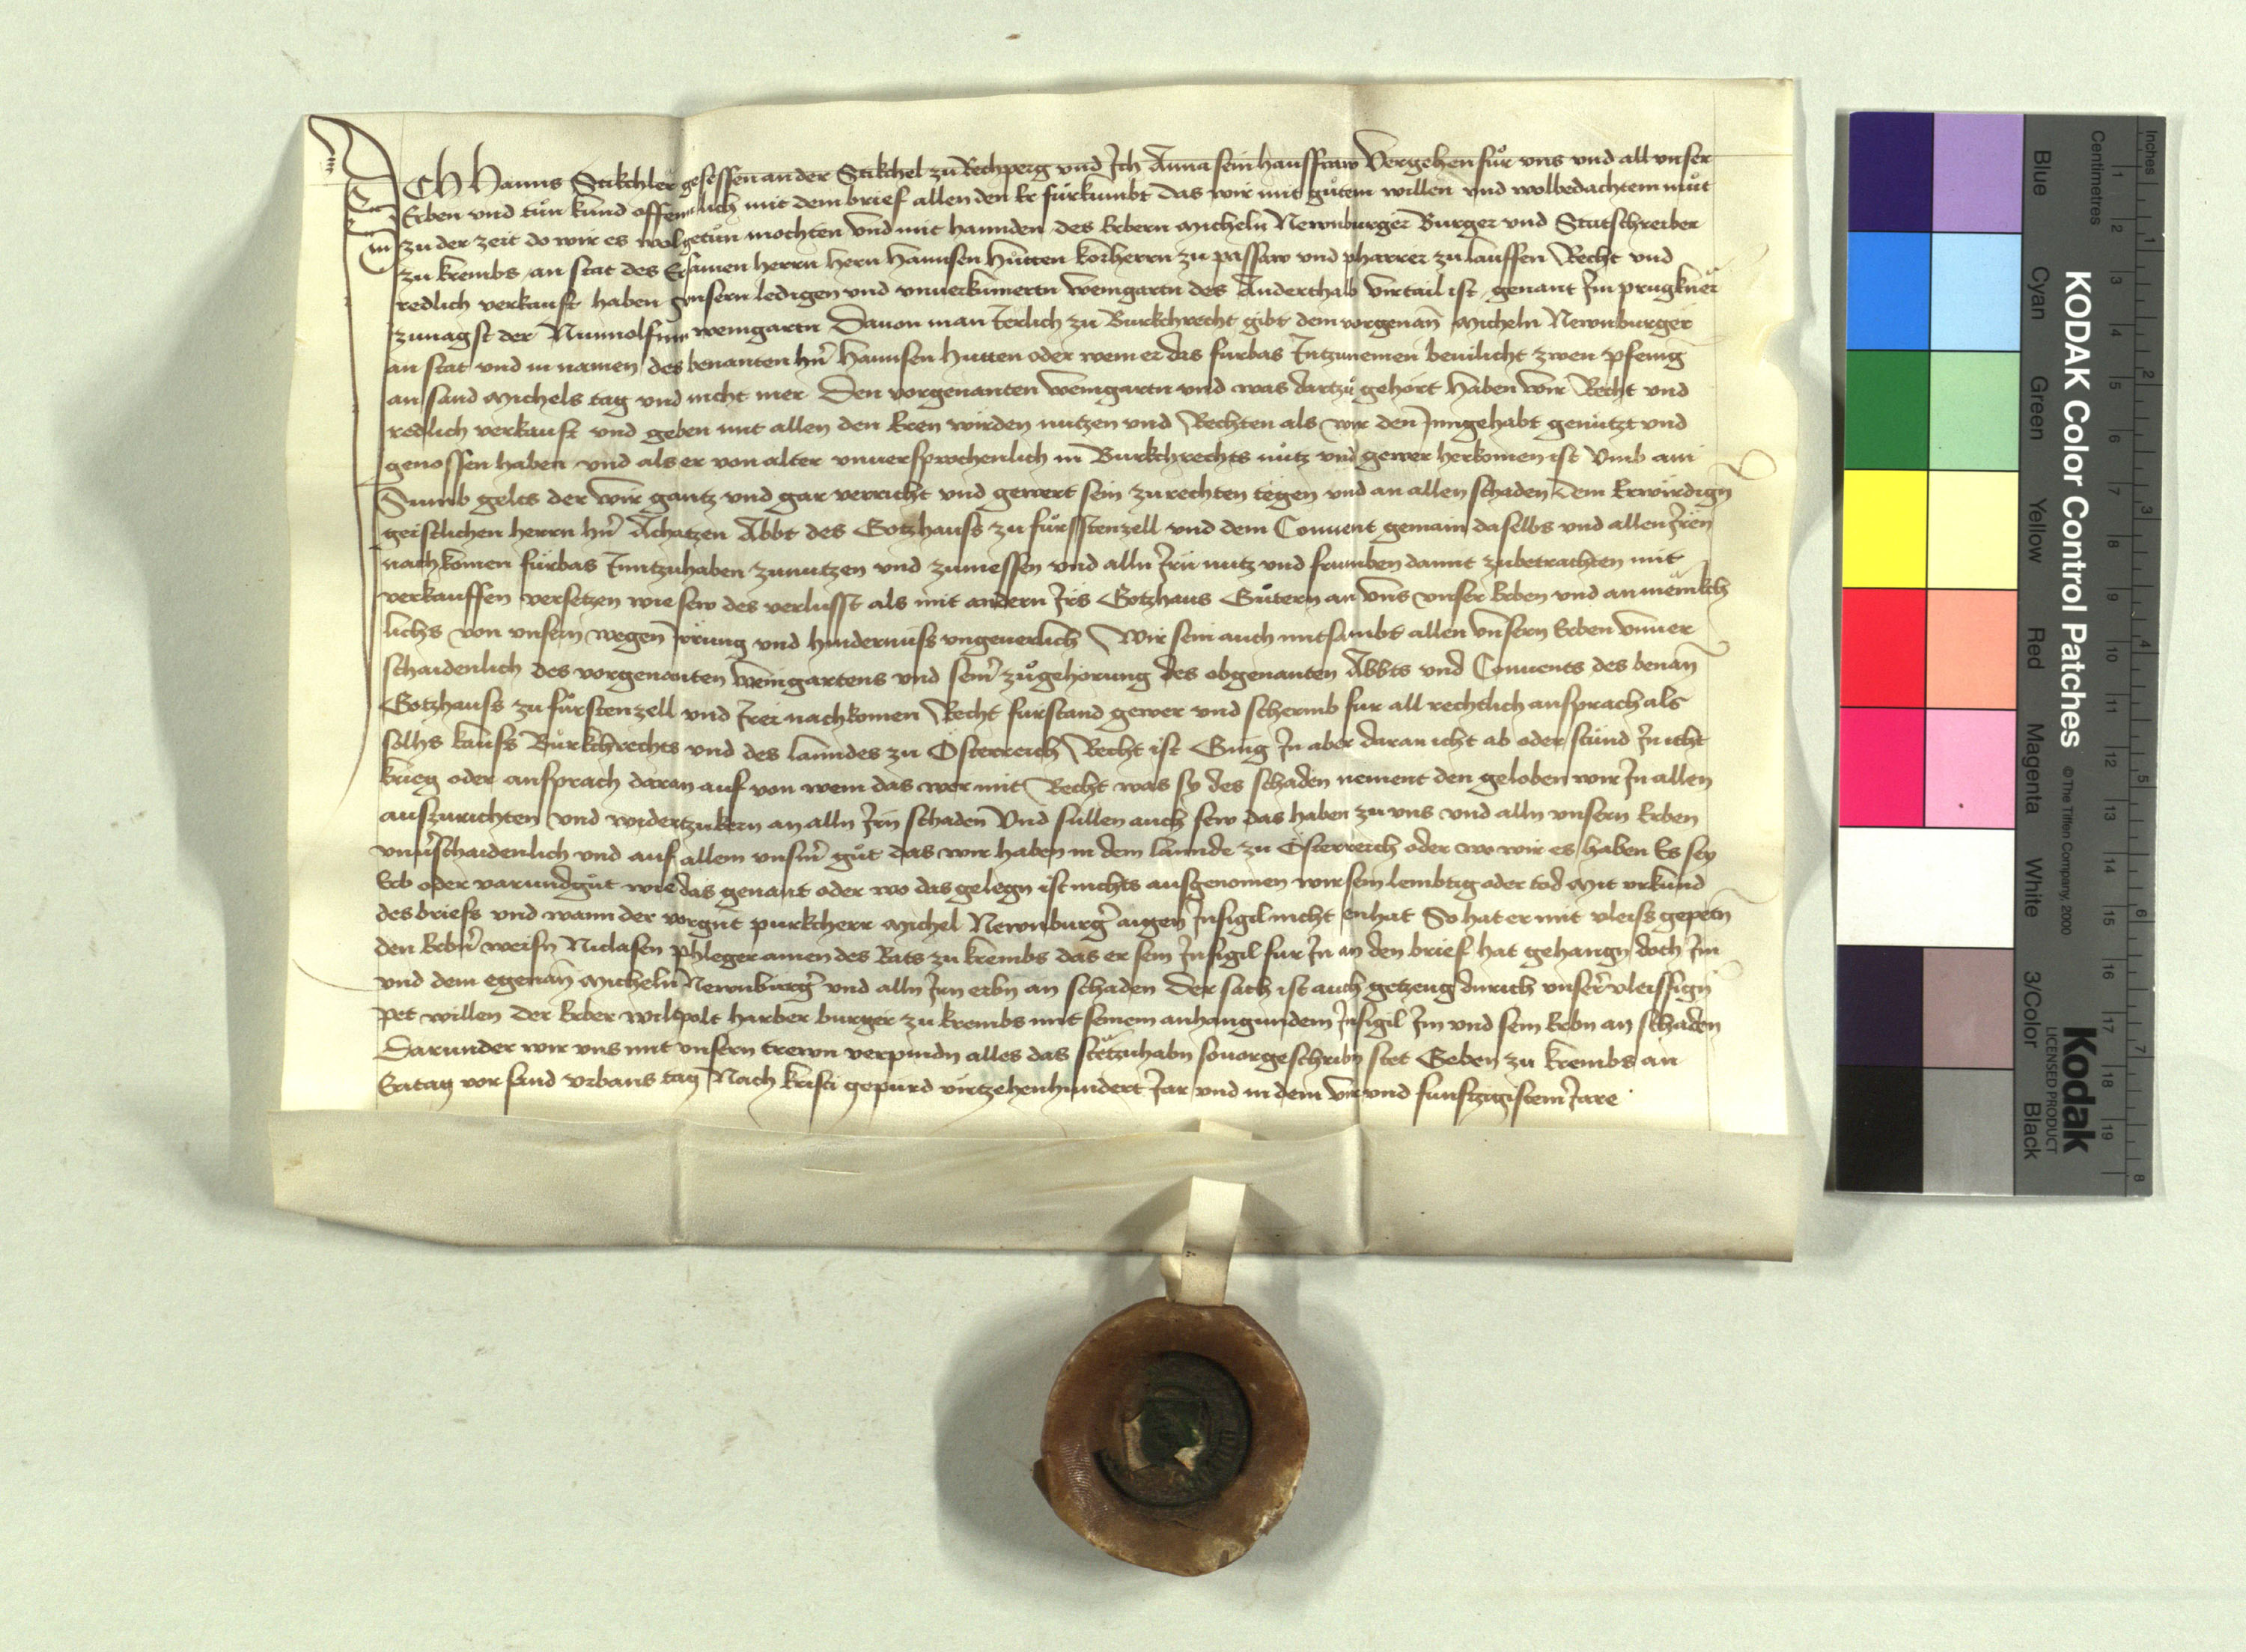 ICH Hanns Stikchler gesessen an der Stikchel zu Rechperg vnd Ich Anna sein hausfraw Vergehen für vns vnd all vnser
Erben vnd tůn kund offenlich mit dem brief allen den er fürkumbt das wir mit gůtem willen vnd wolbedachtem můt
zu der zeit do wir es wol getůn mochten vnd mit hannden des Erbern Micheln Newnburger Burger vnd Statschreiber
zu krembs an stat des Ersamen herrn hern Hannsen Hůtten korherrn zu passaw vnd pharrer zu lauffen Recht vnd
redlich verkauft haben vnsern ledigen vnd vnuerkumertn weingartn des Anderthalb virtail ist genant Im prugkner
zunagst der weingartn Dauon man Ierlich zu Burkchrecht gibt dem vorgenan Micheln Newnburger
an stat vnd in namen des benanten hn Hannsen Hutten oder wem er das furbas Intzunemen beuilicht zwen pfenig
an sand Michels tag vnd nicht mer Den vorgenanten weingartn vnd was dartzů gehört haben wir Recht vnd
redlich verkauft vnd geben mit allen den Eren wirden nutzen vnd Rechten als wir den Inngehabt genützt vnd
genossen haben vnd als er von alter vnuersprochenlich in Burkchrechts nůtz vnd gewer herkomen ist Vmb ain
Sumb gelts der wir gantz vnd gar verricht vnd gewert sein zu rechten tegen vnd an allen schaden dem Erwirdign
geistlichen herrn hn Achatzen Abbt des Gotzhauss zu fürsstenzell vnd dem Conuent gemain daselbs vnd allen Iren
nachkomen fürbas Inntzuhaben zunutzen vnd zuniessen vnd alln Irn nutz vnd frumben damit zubetrachten mit
verkauffen versetzen wie sew des verlusst als mit andern Irs Gotzhaus Gůtern an vns vnser Erben vnd an mënikch
lichs von vnsern wegen Irrung vnd hindernuss vngeuerlich Wir sein auch mitsambt allen vnsern Erben vnuer
schaidenlich des vorgenanten weingartens vnd seiner zůgehörung des obgenanten Abbts vnd Conuents des benan
Gotzhauss zu fürstenzell vnd Irer nachkomen Recht fürstand gewer vnd schermb fur all rechtlich ansprach als
solhs kaufs Bůrkchrechts vnd des lanndes zu Österreich Recht ist Ging In aber daran icht ab oder stünd In icht
krieg oder ansprach daran auf von wem das wer mit Recht was sy des schaden nement den geloben wir In allen
auszurichten vnd widertzukern an alln Irn schaden Vnd sullen auch sew das haben zu vns vnd alln vnsern Erben
vnuerschaidenlich vnd auf allem vnserm gůt das wir haben in dem lannde zu Österreich oder wo wir es haben Es sey
Erb oder varundgůt wie das genant oder wo das gelegn ist nichts ausgenomen wir sein lembtig oder tod Mit vrkund
des briefs vnd wann der vorgnt purkcherr Michel Newnburger aigen Insigil nicht enhat So hat er mit vleiss gepetn
den Erbern weisn Niclasen Phleger ainen des Rats zu krembs das er sein Insigil fur In an den brief hat gehangn doch Im
vnd dem egenan Micheln Newnburger vnd alln Irn erbn an schaden Der sach ist auch getzeug durich vnser vleissign
pet willen der Erber wiltpolt harber burger zu krembs mit seinem anhangundem Insigil Im vnd sein Erbn an schaden
Darunder wir vns mit vnsern trewn verpindn alles das stëtzuhabn souorgeschribn stet Geben zu krembs an
Eritag vor sand vrbans tag Nach kristi gepurd virtzehenhundert Iar vnd in dem vir vnd funftzigistem Iare
KODAK Color Control Patches
© The Tiffen Company, 2000
Kodak
LICENSED PRODUCT
Blue Cyan Green Yellow Red Magenta White 3/Color Black
Inches
1 2 3 4 5 6 7 8
Centimetres
1 2 3 4 5 6 7 8 9 10 11 12 13 14 15 16 17 18 19